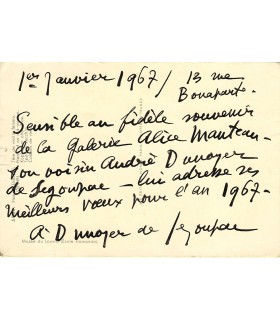 1er Janvier 1967 / 13 rue
Bonaparte.
Sensible au fidèle souvenir
de la Galerie Alice Manteau
son voisin André Dunoyer
de Segonzac — lui adresse ses
meilleurs vœux pour l'an 1967.
A D unoyer de Segonzac
Musée du Louvre